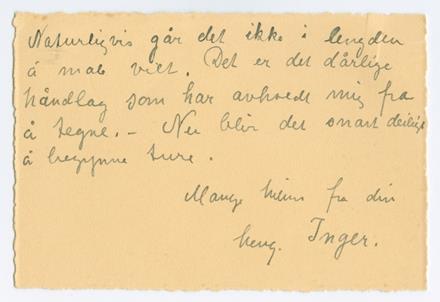 Naturligvis går det ikke i lengden
å male vilt. Det er det dårlige
håndlag som har avholdt mig fra
å tegne. – Nu blir det snart deilig
å begynne ture.
Mange hilsen fra din
heng. Inger.